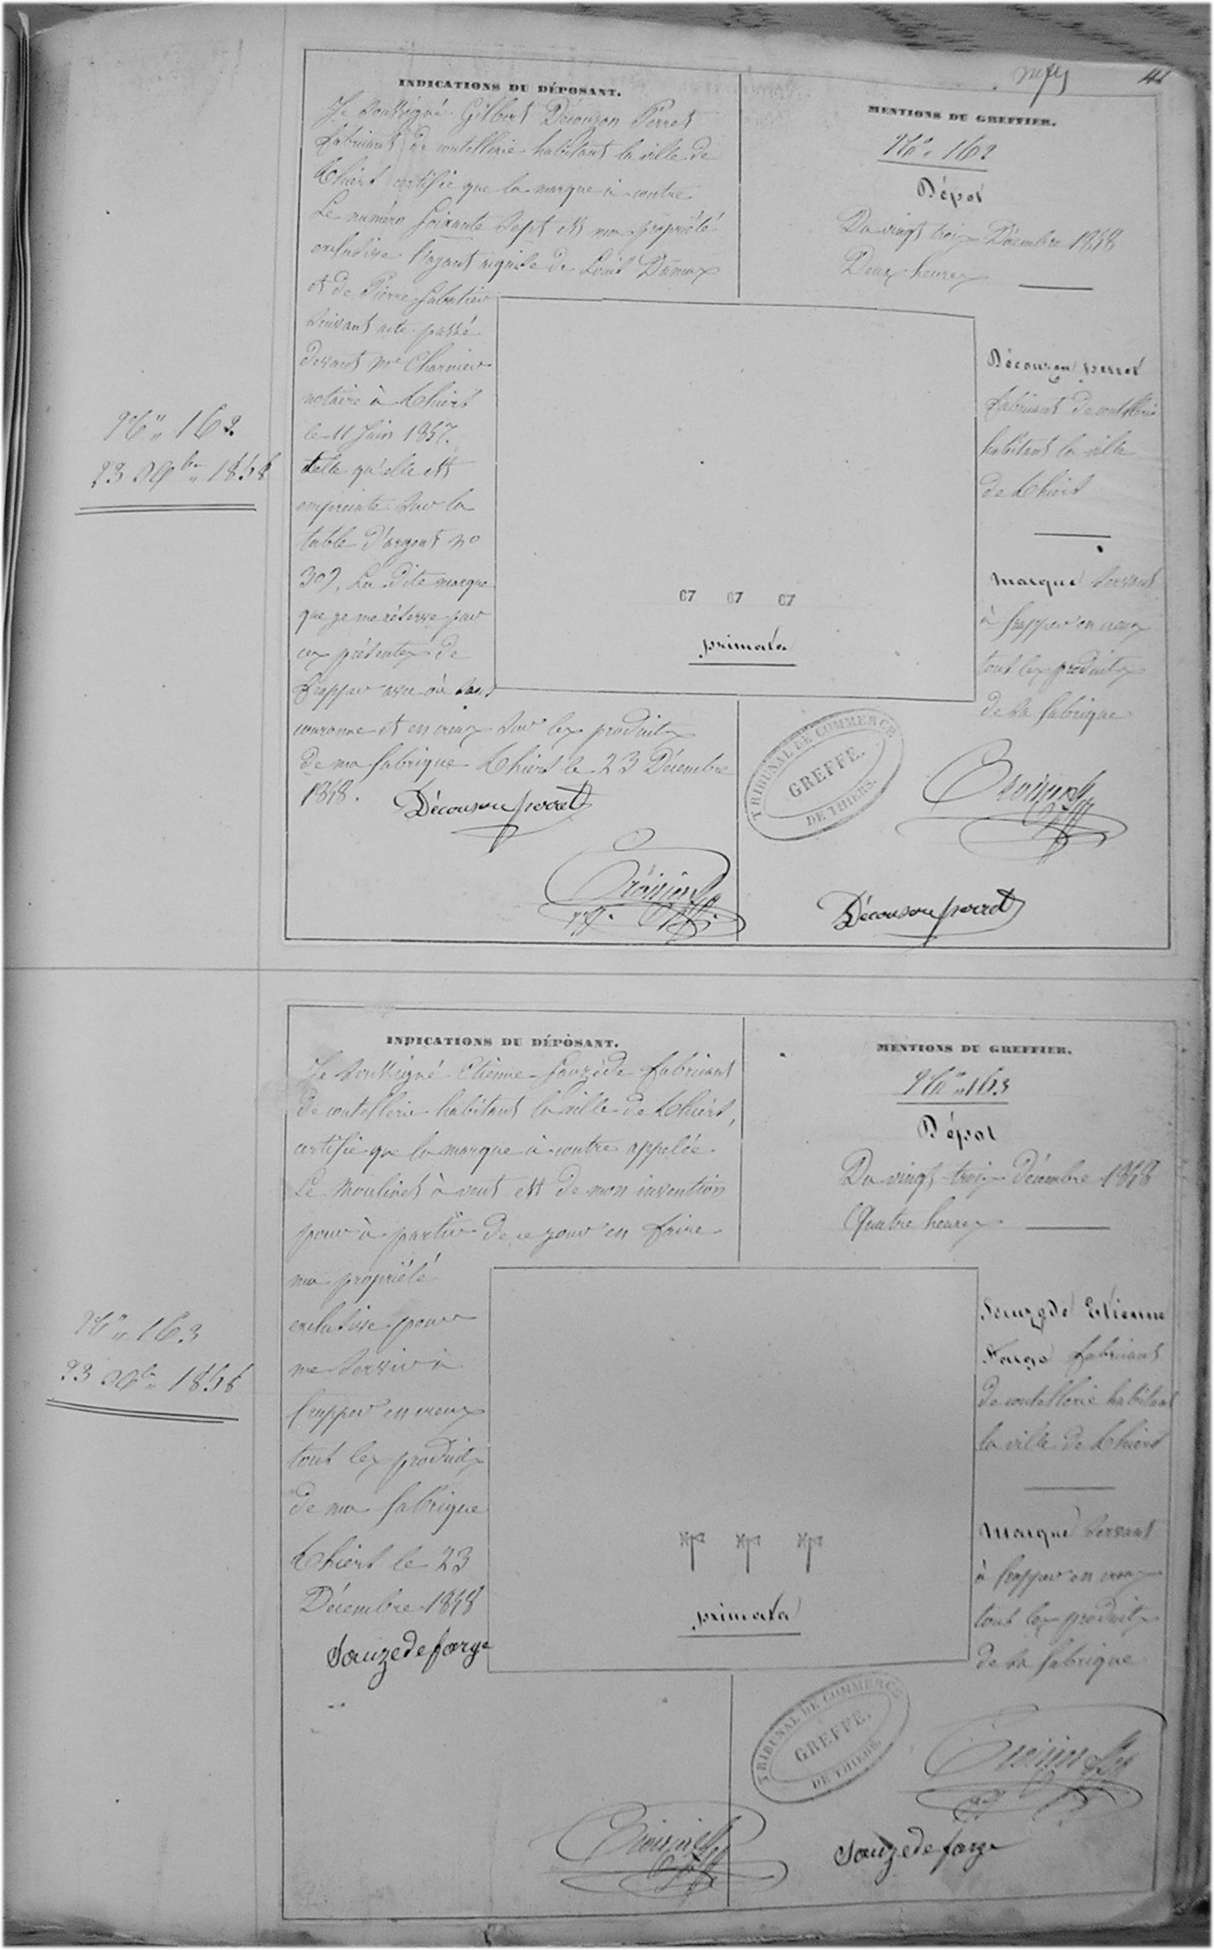 41
INDICATIONS DU DÉPOSANT.
Je soussigné Gilbert Décousou Perret
fabricant de coutellerie habitant la ville de
Thiers certifie que la marque ci contre
Le numéro soixante sept est ma propriété
exclusive l'ayant acquise de
et de Pierre Sabatier
suivant acte passé
devant me
notaire à Thiers
le 11 Juin 1857.
telle qu'elle est
empreinte sur la
table d'argent no
309. La dite marque
que je me réserve par
ces présentes de
frapper avec ou sans
couronne et en creux sur les produits
de ma fabrique Thiers le 23 Décembre
1858.
Décousou perret
MENTIONS DU GREFFIER.
No 162
Dépot
Du vingt trois Décembre 1858
Deux heures
Décousou perret
fabricant de coutellerie
habitant la ville
de Thiers
Marque servant
à frapper en creux
tout les produits
de sa fabrique
No 162
23 Xbre 1858
67 67 67
primata
TRIBUNAL DE COMMERCE
GREFFE.
DE THIERS.
Décousou perret
INDICATIONS DU DÉPOSANT.
Je soussigné Etienne Sauzède fabricant
de coutellerie habitant la ville de Thiers,
certifie que la marque ci contre appelée
Le Moulinet à vent est de mon invention
pour à partir de ce jour en faire
ma propriété
exclusive pour
me servir à
frapper en creux
tout les produits
de ma fabrique
Thiers le 23
Décembre 1858
Sauzede farge
MENTIONS DU GREFFIER.
No 163
Dépot
Du vingt trois décembre 1858
Quatre heures
Sauzede Etienne
Farge fabricant
de coutellerie habitant
la ville de Thiers
Marque servant
à frapper en creux
tout les produits
de sa fabrique
No 163
23 Xbre 1858
primata
TRIBUNAL DE COMMERCE
GREFFE.
DE THIERS.
Sauzede farge